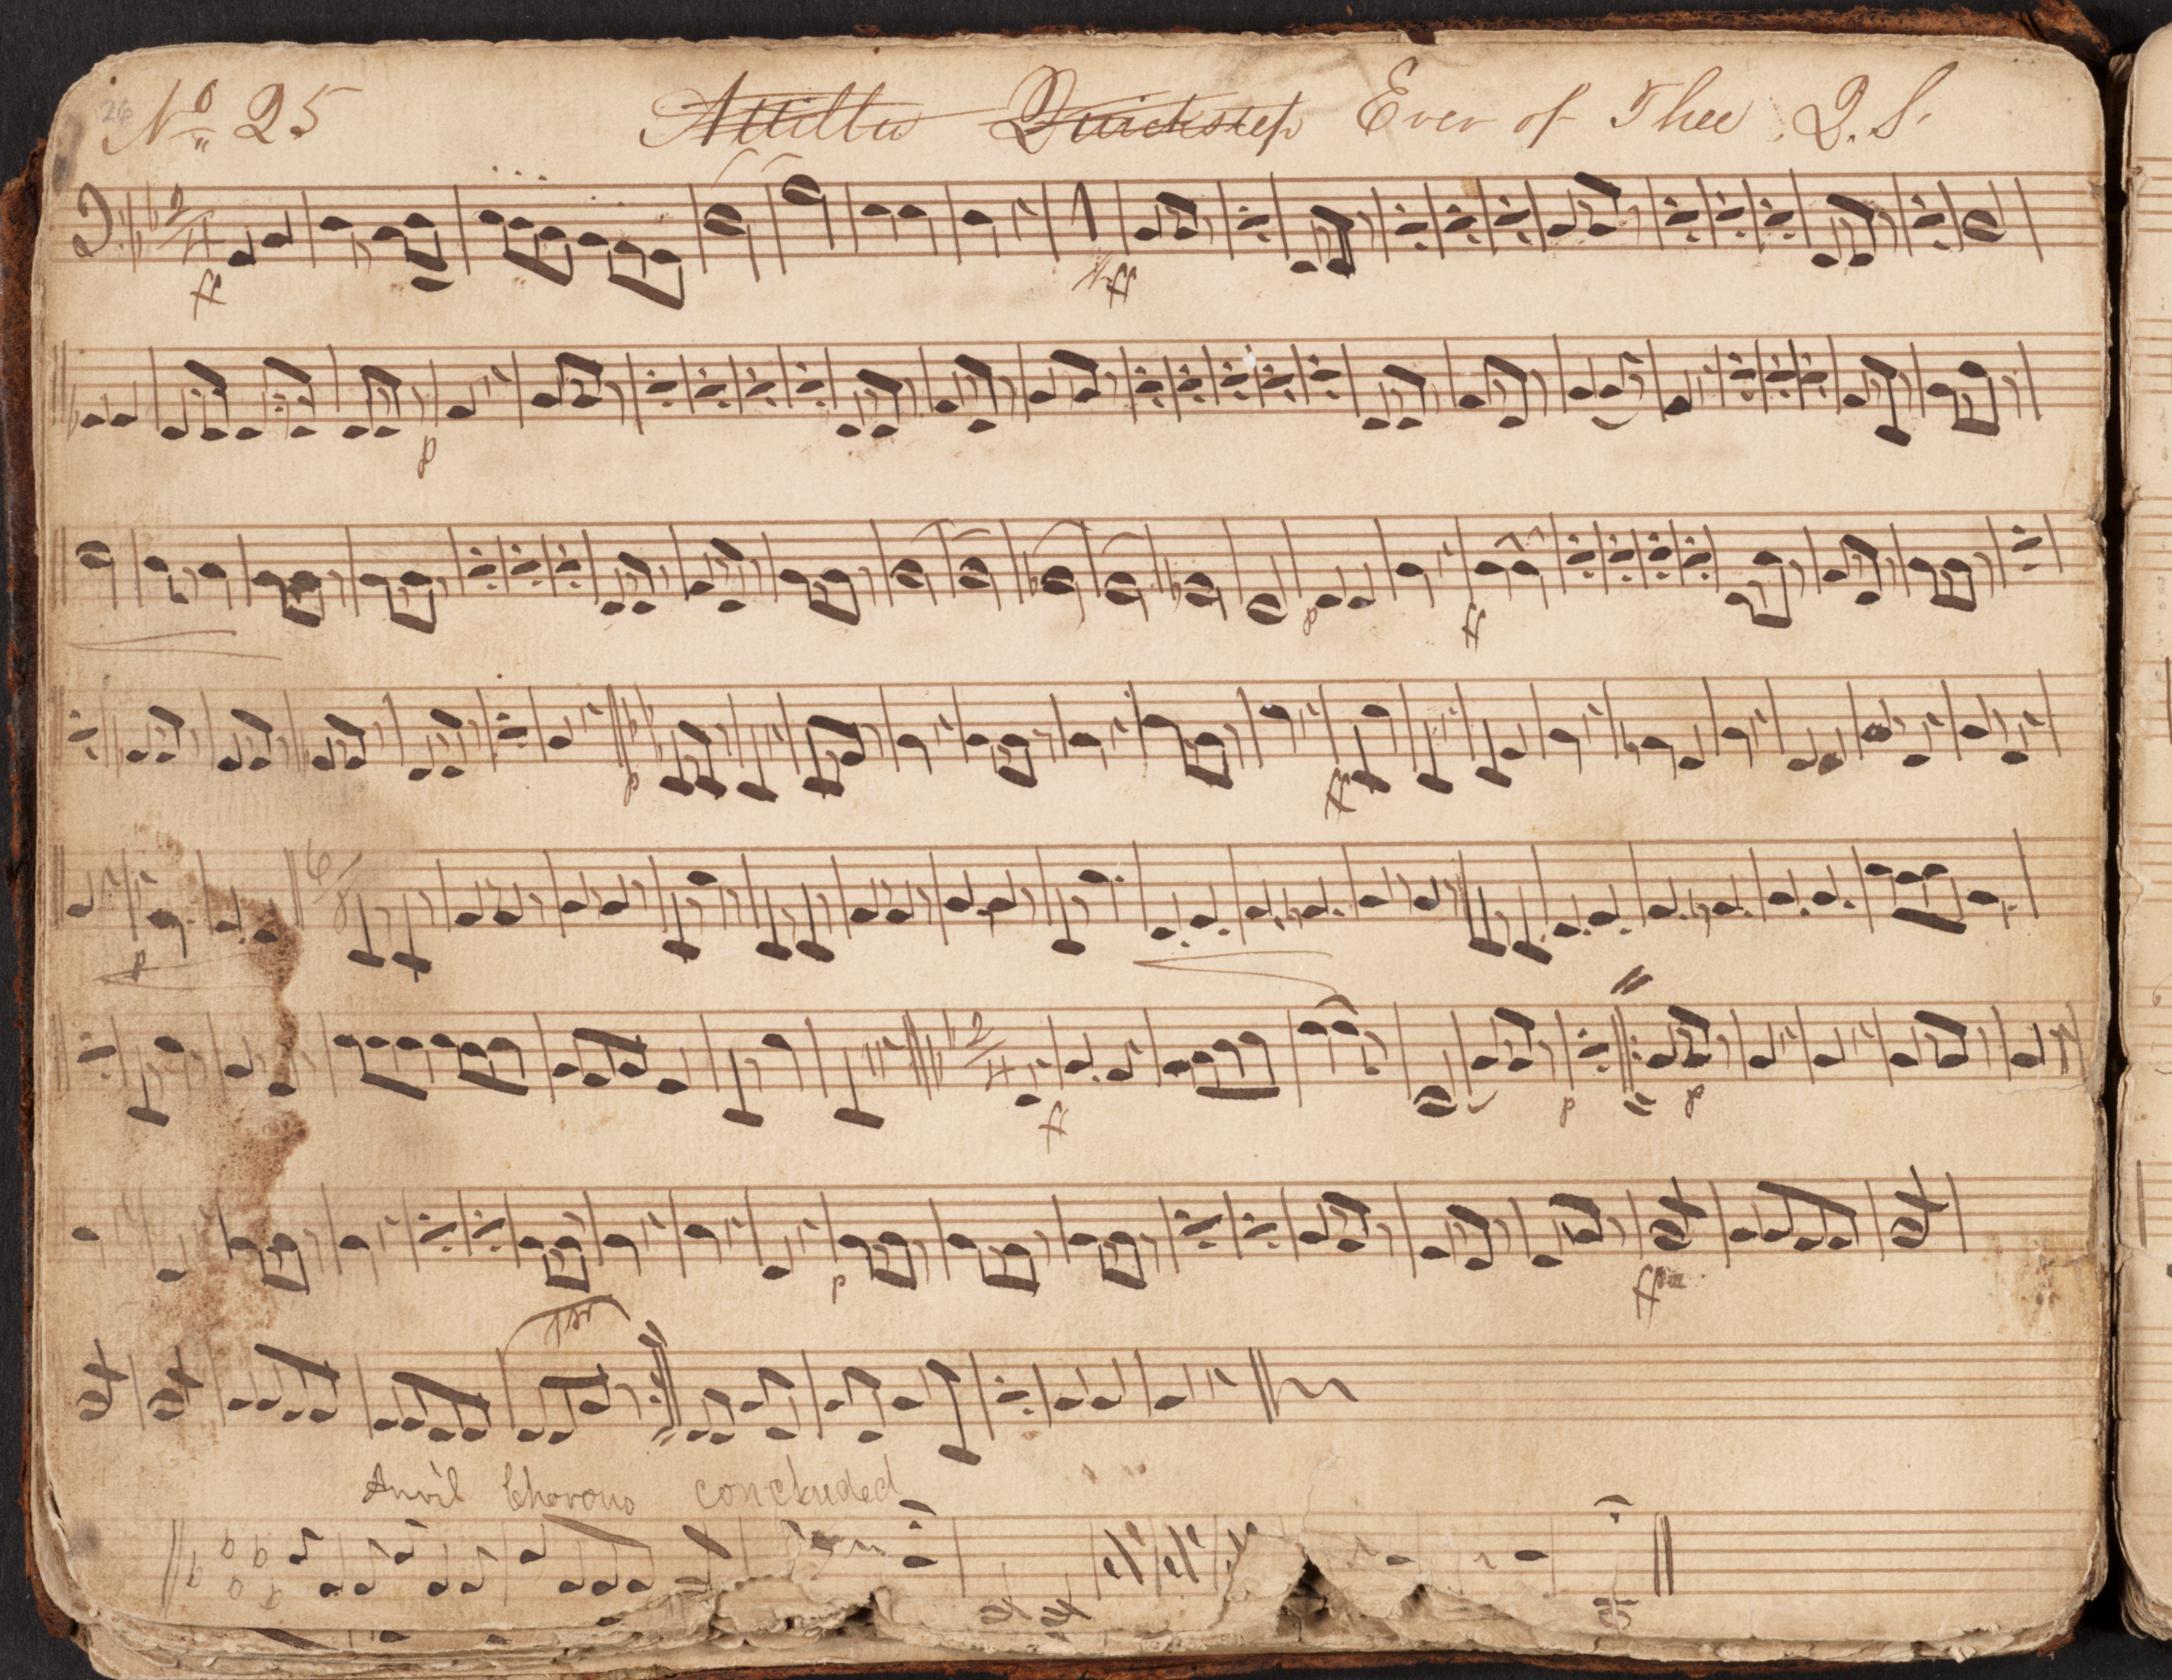 26 No 25 Attilla Quickstep Ever of Thee Q.S.
2/4
ff ff
p
p ff
p ff
p 6/8
2/4
ff p p
p ff
Anvil Chorous concluded